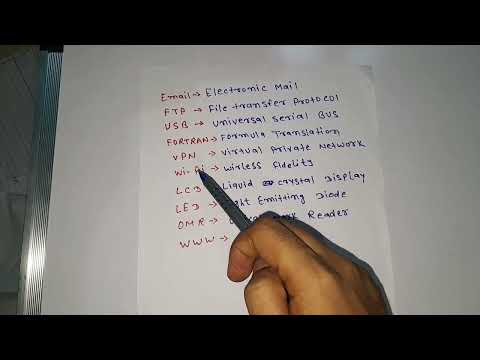 Email → Electronic Mail
FTP → File transfer Protocol
USB → Universal Serial BUS
FORTRAN → Formula Translation
VPN → Virtual Private Network
Wi-Fi → Wirless Fidelity
LCD Liquid crystal Display
LED Emitting Diode
OMR → Reader
WWW →